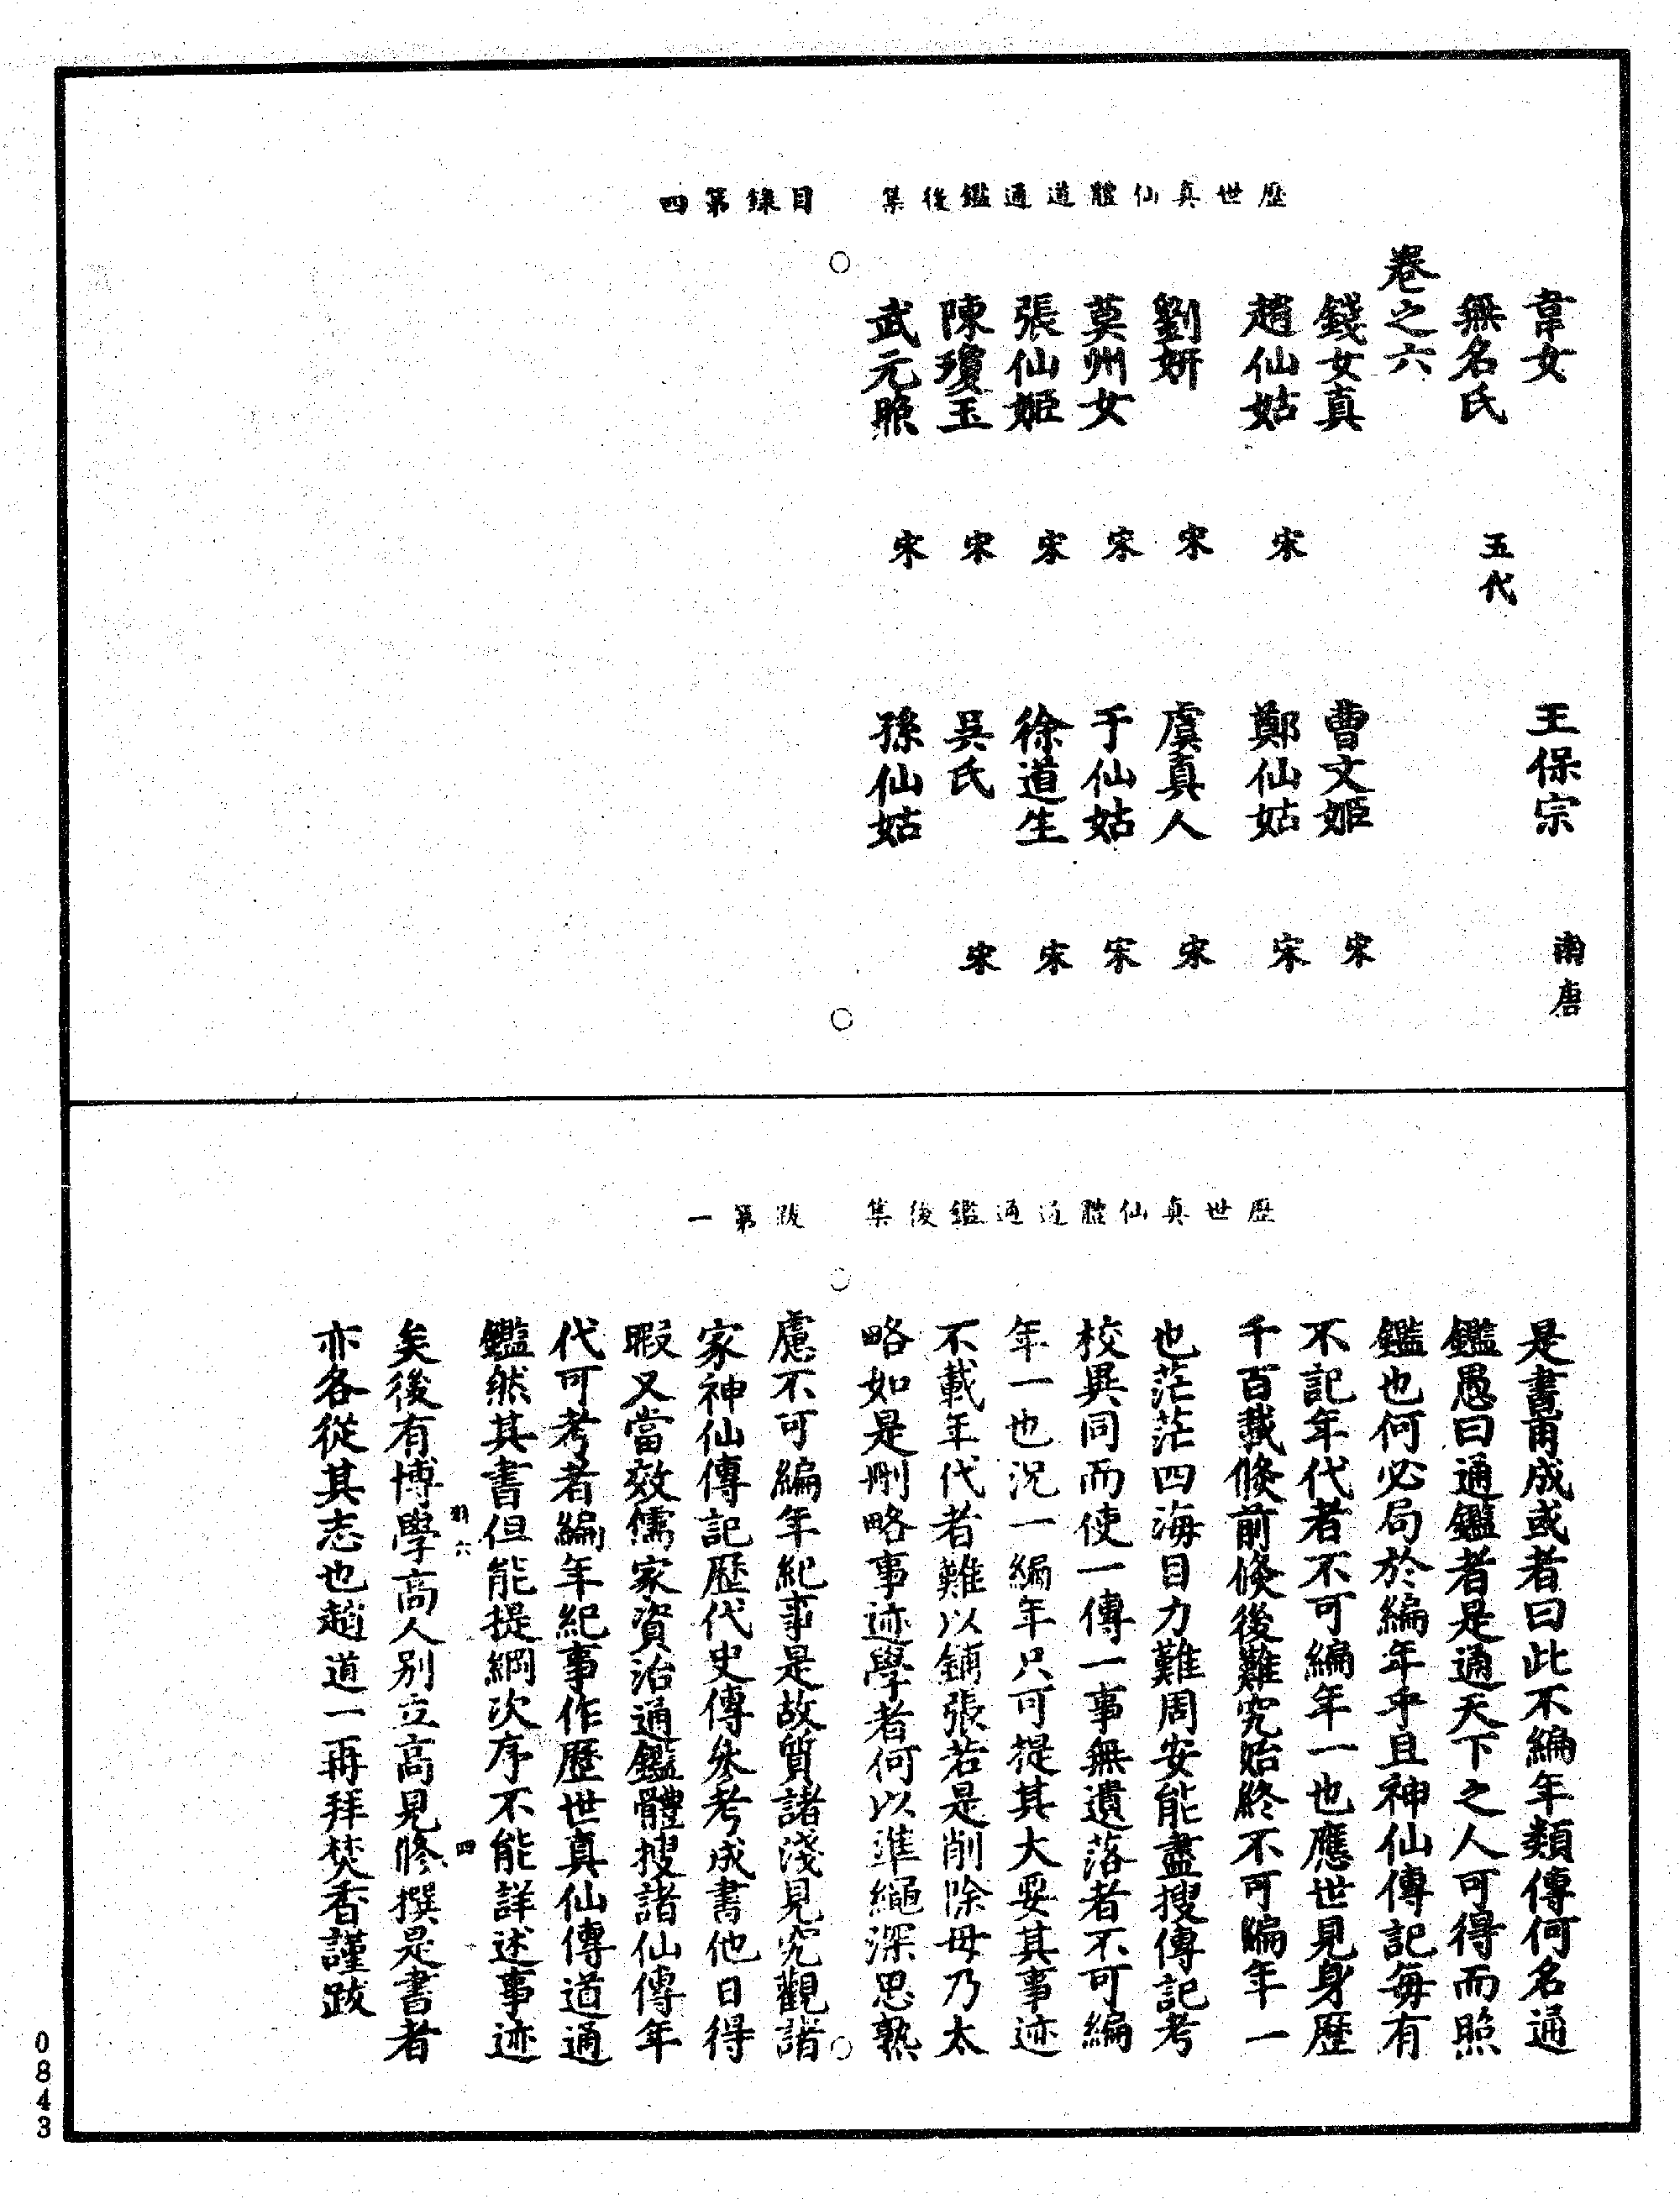 歷世真仙體道通鑑後集　目錄第四
韋女　王保宗　南唐
無名氏　五代
卷之六
錢女真　曹文姬　宋
趙仙姑　宋　鄭仙姑　宋
劉妍　宋　虞真人　宋
莫州女　宋　于仙姑　宋
張仙姬　宋　徐道生　宋
陳瓊玉　宋　吳氏　宋
武元照　宋　孫仙姑
歷世真仙體道通鑑後集　跋第一
是書甫成或者曰此不編年類傳何名通
鑑愚曰通鑑者是通天下之人可得而照
鑑也何必局於編年乎且神仙傳記每有
不記年代者不可編年一也應世見身歷
千百載倐前倐後難究始終不可編年一
也茫茫四海目力難周安能盡搜傳記考
校異同而使一傳一事無遺落者不可編
年一也況一編年只可提其大要其事迹
不載年代者難以鋪張若是削除毋乃太
略如是刪略事迹學者何以準繩深思熟
慮不可編年紀事是故質諸淺見究觀諸
家神仙傳記歷代史傳參考成書他日得
暇又當效儒家資治通鑑體搜諸仙傳年
代可考者編年紀事作歷世真仙傳道通
鑑然其書但能提綱次序不能詳述事迹
六　四
矣後有博學高人別立高見修撰是書者
亦各從其志也趙道一再拜焚香謹跋
0843